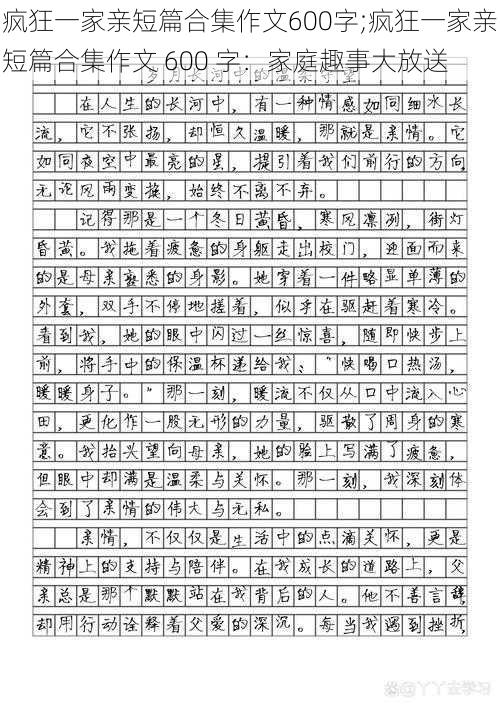 疯狂一家亲短篇合集作文600字;疯狂一家亲
短篇合集作文 600 字：家庭趣事大放送
岁月长河中的温柔守望
在人生的长河中，有一种情感如同细水长
流，它不张扬，却恒久温暖，那就是亲情。它
如同夜空中最亮的星，提引着我们前行的方向
无论风雨变换，始终不离不弃。
记得那是一个冬日黄昏，寒风凛冽，街灯
昏黄。我拖着疲惫的身躯走出校门，迎面而来
的是母亲熟悉的身影。她穿着一件略显单薄的
外套，双手不停地搓着，似乎在驱赶着寒冷。
看到我，她的眼中闪过一丝惊喜，随即快步上
前，将手中的保温杯递给我、“快喝口热汤，
暖暖身子。”那一刻，暖流不仅从口中流入心
田，更化作一股无形的力量，驱散了周身的寒
意。我抬头望向母亲，她的脸上写满了疲惫，
但眼中却满是温柔与关怀。那一刻，我深刻体
会到了亲情的伟大与无私。
亲情，不仅仅是生活中的点滴关怀，更是
精神上的支持与陪伴。在我成长的道路上，父
亲总是那个默默站在我背后的人。他不善言辞
却用行动诠释着父爱的深沉。每当我遇到挫折，
@丫丫去学习